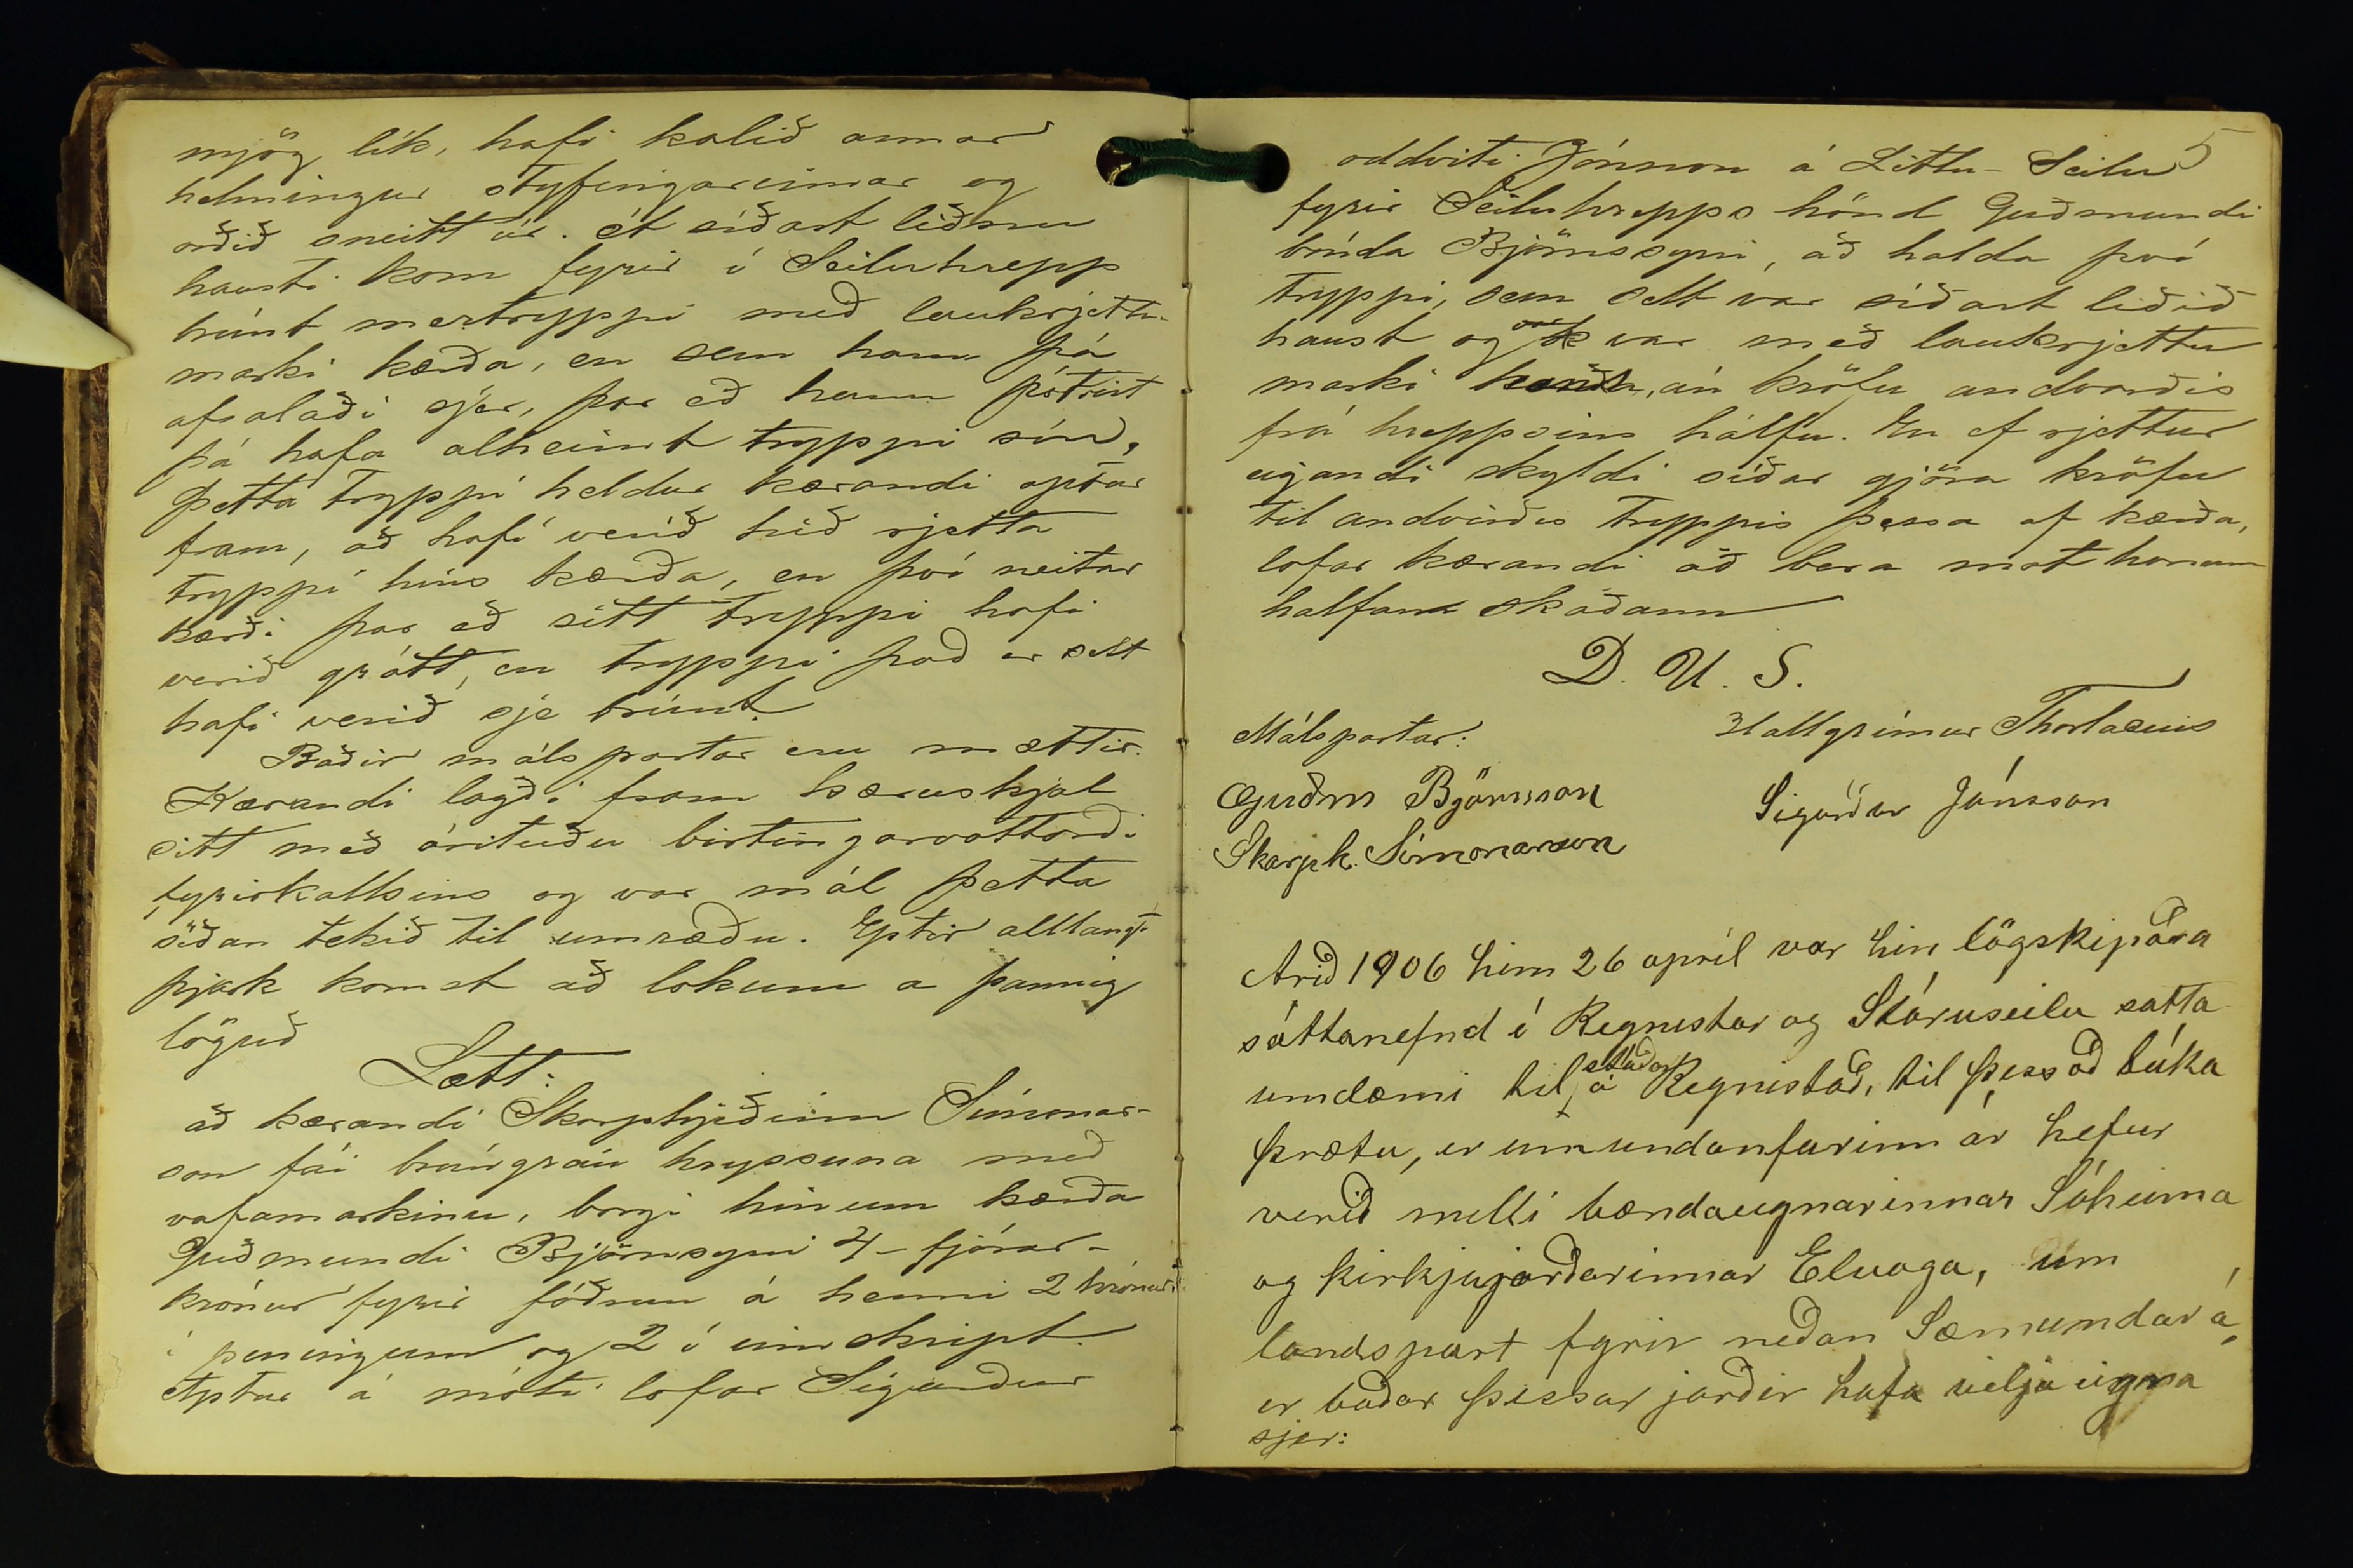 mjög lík, hafi kalið annar
helmingur styfingarinnar og
orðið sneitt úr. Á síðast liðnu
hausti kom fyrir í Seiluhrepp
brúnt mertryppi með laukrjettu-
marki kærða, en sem hann þá
afsalaði sjer, þar eð hann þóttist
þá hafa alheimt tryppi sín,
Þetta tryppi heldur kærandi aptur
fram, að hafi verið hið rjetta
tryppi hins kærða, en því neitar
kærði þar eð sitt tryppi hafi
verið grátt, en tryppi það er selt
hafi verið sje brúnt.
Báðir málspartar eru mættir.
Kærandi lagði fram kæruskjal
sitt með árituðu birtingarvottorði
fyrirkallsins og var mál þetta
síðan tekið til umræðu. Eptir alllangt
þjark komst að lokum á þannig
löguð
Sætt:
að kærandi Skarphjeðinn Símonar-
son fái brúngráu hryssuna með
vafamarkinu, borgi hinum kærða
Guðmundi Björnssyni 4 - fjórar -
krónur fyrir fóðrun á henni 2 krónur
í peningum og 2 í innskript.
Aptur á móti lofar Sigurður
5
oddviti Jónsson á Litlu-Seilu
fyrir Seiluhrepps hönd Guðmundi
bónda Björnssyni, að halda því
tryppi, sem selt var síðast liðið
haust og var með laukrjettu
marki kærða, án kröfu andvirðis
frá hreppsins hálfu. En ef rjettur
eigandi skyldi síðar gjöra kröfu
til andvirðis tryppis þessa af kærða,
lofar kærandi að bera mót honum
halfann skaðann
D. U. S.
Málspartar: Hallgrímur Thorlacius
Guðm Björnsson Sigurður Jónsson
Skarph. Símonarson
Árið 1906 hinn 26 apríl var hin lögskipaða
sáttanefnd í Reynistar og Stóruseilu satta
umdæmi til staðar á Reynistað, til þess að túka
þrætu, er um undanfarinn ár hefur
verið milli bændaeignarinnar Sóheima
og kirkjujarðarinnar Elvoga, um
landspart fyrir neðan Sæmundará,
er báðar þessar jarðir hafa viljað eigna
sjer: